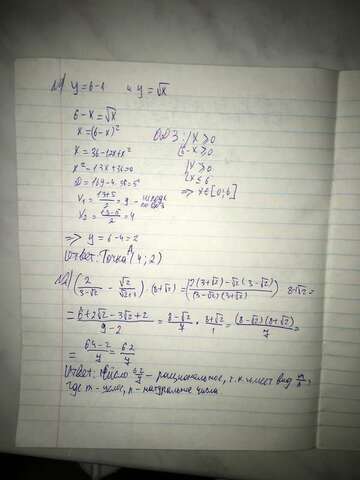 №1 y=6-x и y=√x
6-x=√x
x=(6-x)² ОДЗ: {x≥0
x=36-12x+x² {6-x≥0
x²-13x+36=0 {x≥0
D=169-4·36=5² {x≤6
x₁=(13+5)/2=9 - не под ОДЗ => x∈[0;6]
x₂=(13-5)/2=4
=> y=6-4=2
Ответ: Точка A(4;2)
№2) (2/(3-√2) - √2/(√2+3))·(8+√2) = (2(3+√2)-√2(3-√2))/((3-√2)(3+√2)) · 8+√2=
=(6+2√2-3√2+2)/(9-2)=(8-√2)/7·(8+√2)/1=((8-√2)(8+√2))/7=
=(64-2)/7=62/7
Ответ: Число 62/7 - рациональное, т.к. имеет вид m/n,
где m - целое, n - натуральное числа